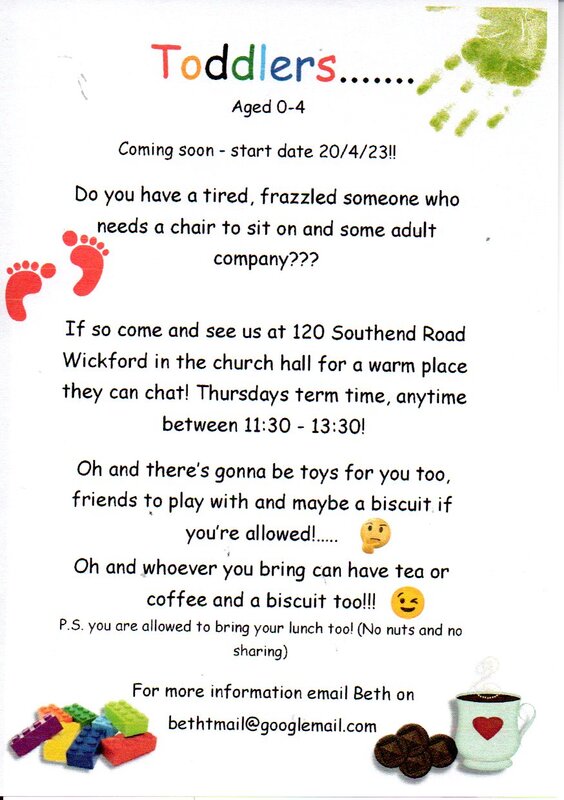 Toddlers.......
Aged 0-4
Coming soon - start date 20/4/23!!
Do you have a tired, frazzled someone who
needs a chair to sit on and some adult
company???
If so come and see us at 120 Southend Road
Wickford in the church hall for a warm place
they can chat! Thursdays term time, anytime
between 11:30 - 13:30!
Oh and there's gonna be toys for you too,
friends to play with and maybe a biscuit if
you're allowed!.....
Oh and whoever you bring can have tea or
coffee and a biscuit too!!!
P.S. you are allowed to bring your lunch too! (No nuts and no
sharing)
For more information email Beth on
bethtmail@googlemail.com